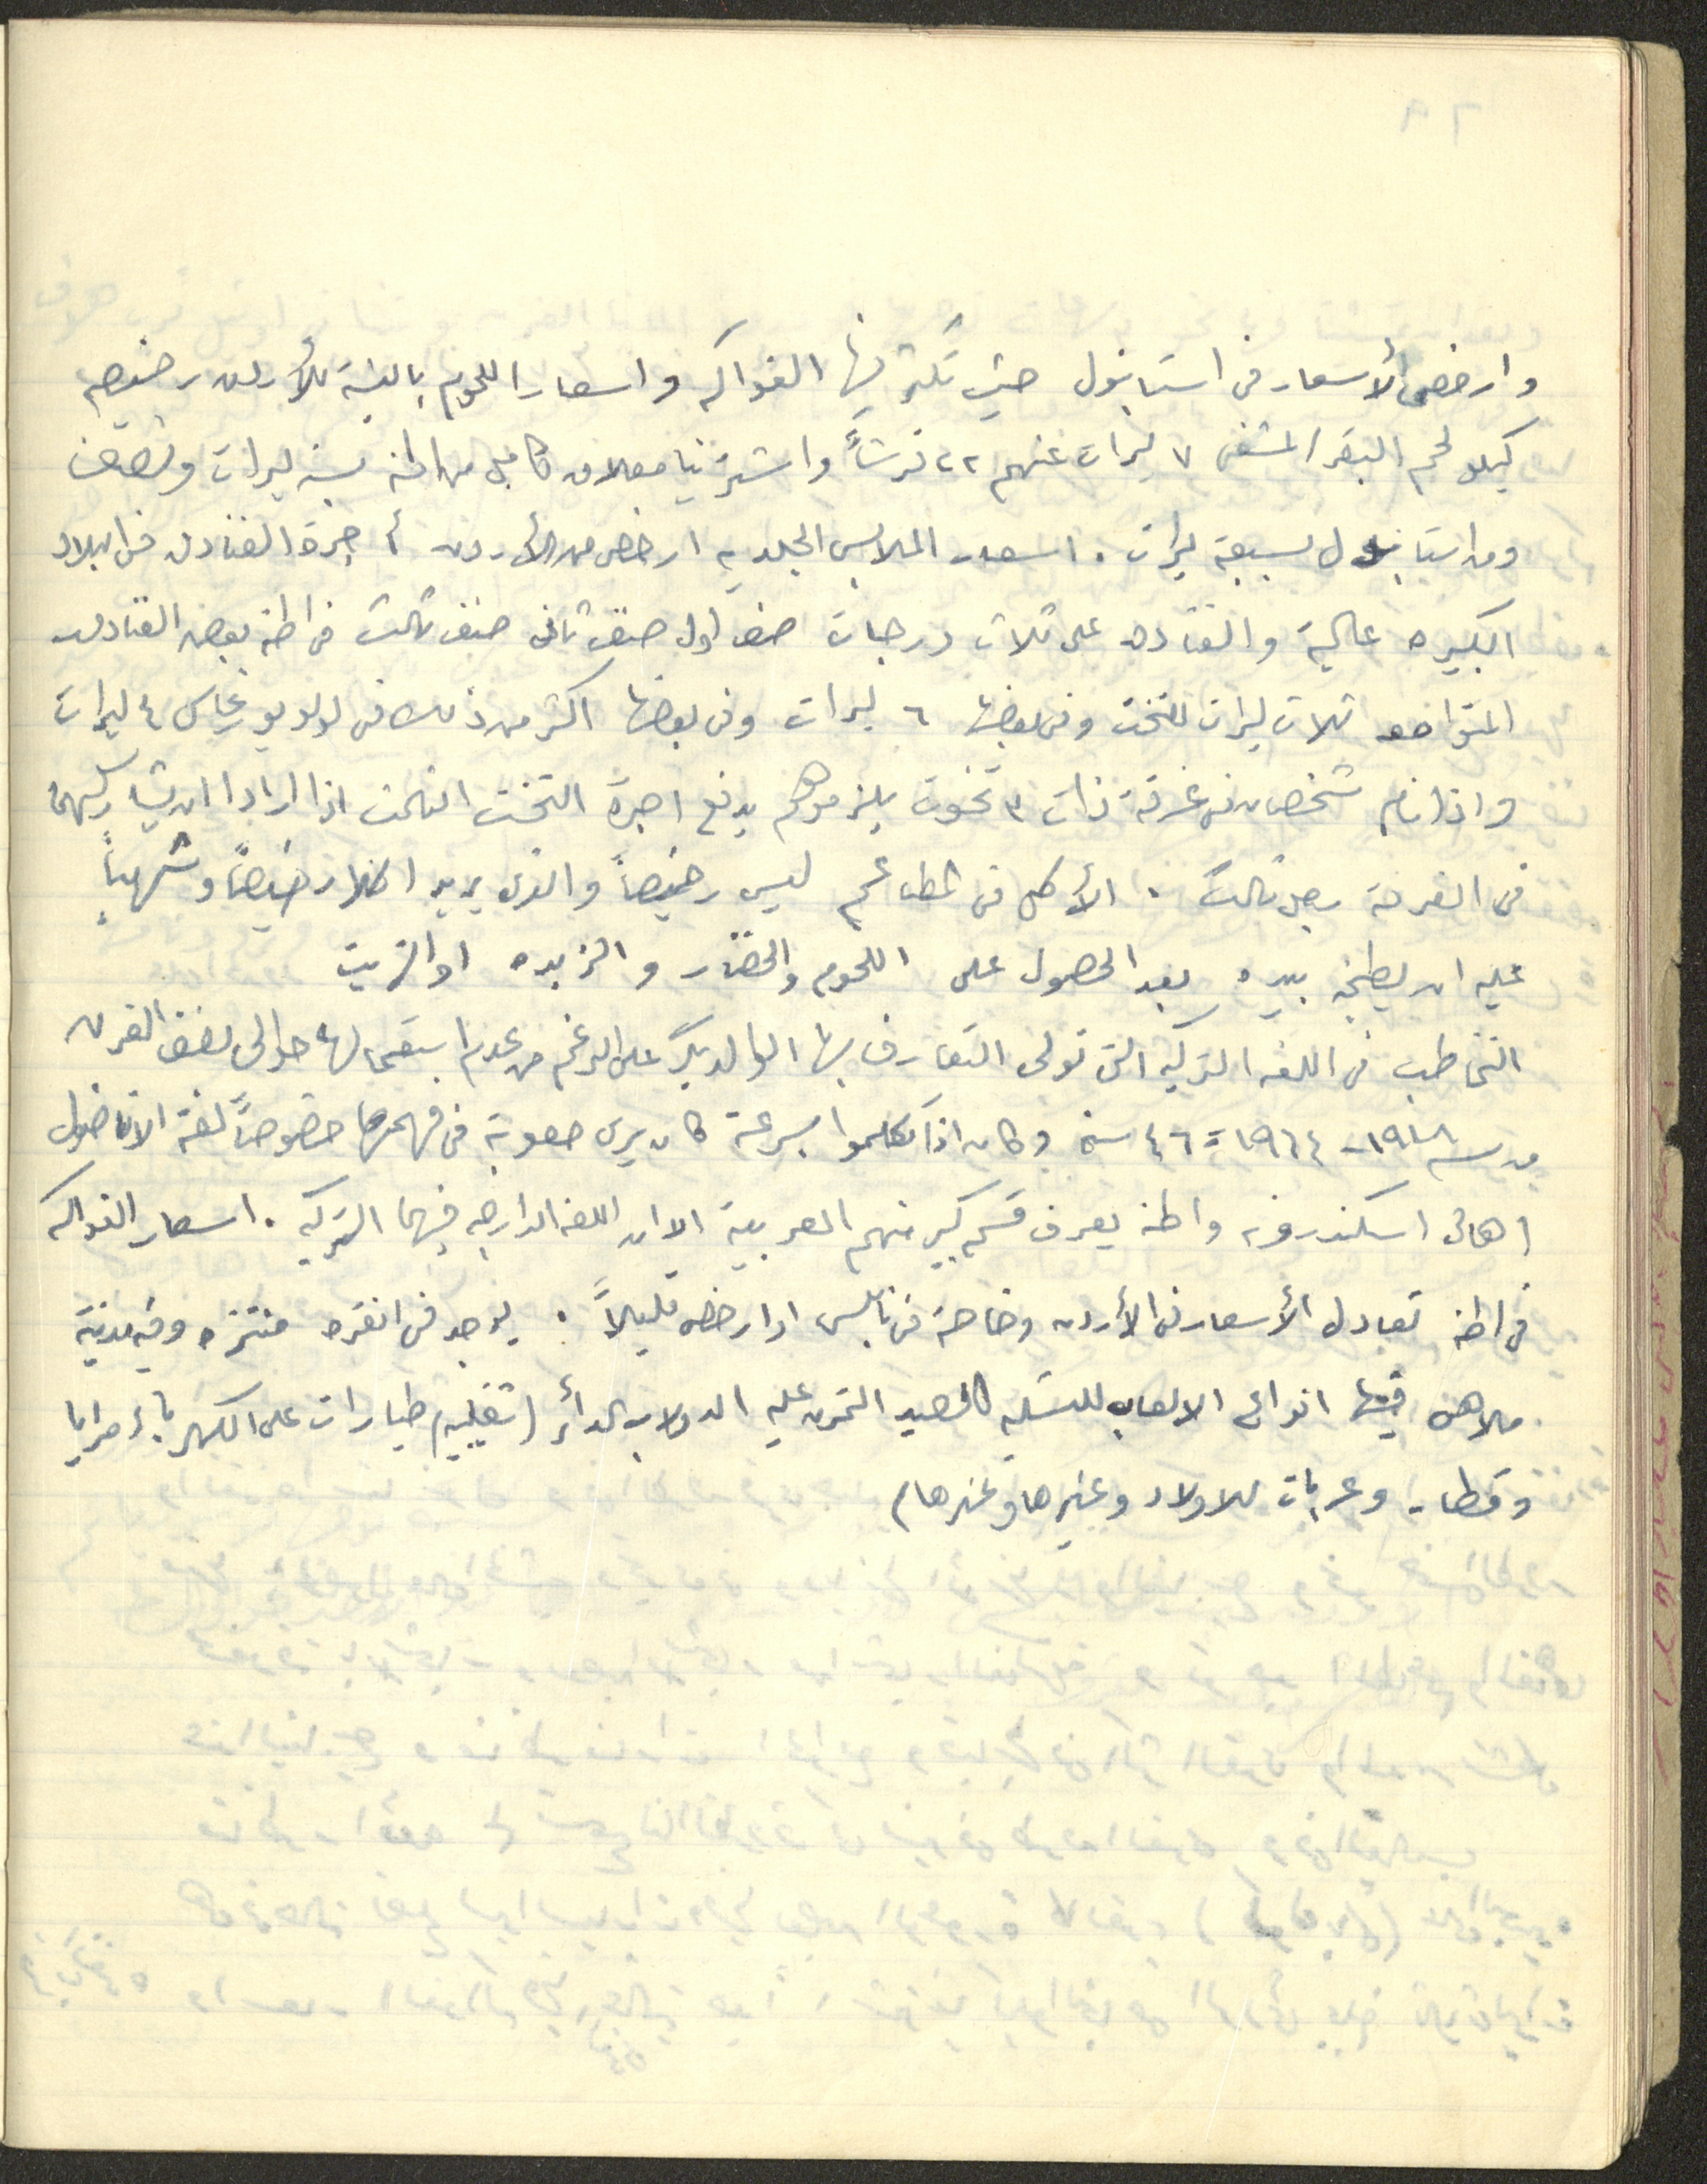 وارخص الأسعار في استانبول حيث تكثر فيها الفواكه واسعار اللحوم بالنسبة للأردن رخيصه
كيلو لحم البقر المشفى ٧ ليرات عنهم ٢٢ قرشاً واشترينا معلاق كامل من اطنه بستة ليرات ونصف
ومن استانبول بسبعة ليرات . اسعار الملابس الجلديه ارخص من الأردن أجرة الفنادق في البلاد
الكبيره عالية والفنادق على ثلاث درجات صنف اول صنف ثاني صنف ثالث في اطنه بعض الفنادق
المتواضعه ثلاث ليرات للتخت وفي بعضها ٦ ليرات وفي بعضها اكثر من ذلك في لولوبورغاس ٤ ليرات
واذا نام شخصان في غرفة ذات ٣ تخوت يلزموهم بدفع اجرة التخت الثالث اذا ارادا ان لا يشاركهما
في الغرفة رجل ثالث . الأكل في المطاعم ليس رخيصاً والذي يريد اكلا رخيصاً وشهياً
عليه ان يطبخه بيده بعد الحصول على اللحوم والخضار والزبده او الزيت
التخاطب في اللغه التركيه التي تولى التعارف بها الوالد بك على الرغم من عدم استعمالها حوالي نصف القرن
من سنة ١٩١٨ - ١٩٦٤ = ٤٦ سنة وكان اذا تكلموا بسرعة كان يرى صعوبة في فهمها خصوصاً لغة الاناضول
اهالي اسكندرونه واطنه يعرف قسم كبير منهم العربية الا ان اللغه الدارجه فيهما التركيه . اسعار الفواكه
في اطنه تعادل الأسعار في الأردن وخاصة في نابلس او ارخص قليلاً . يوجد في انقره منتزه وفيه مدينة
ملاهي فيها انواع الالعاب للتسليه كالصيد التمرن عليه الدولاب الدائر (تقليبه) طيارات على الكهرباء مرايا
وقطار وعربات للاولاد وغيرها وغيرها)